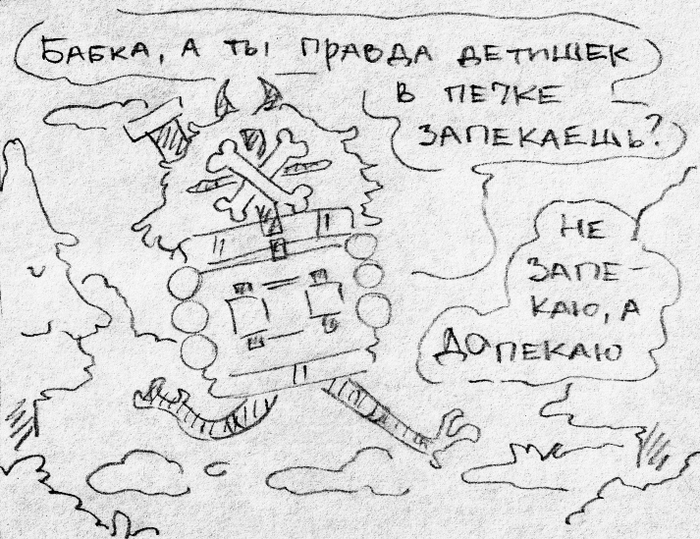 БАБКА, А ТЫ ПРАВДА ДЕТИШЕК
В ПЕЧКЕ
ЗАПЕКАЕШЬ?
НЕ
ЗАПЕ-
КАЮ, А
ДОПЕКАЮ